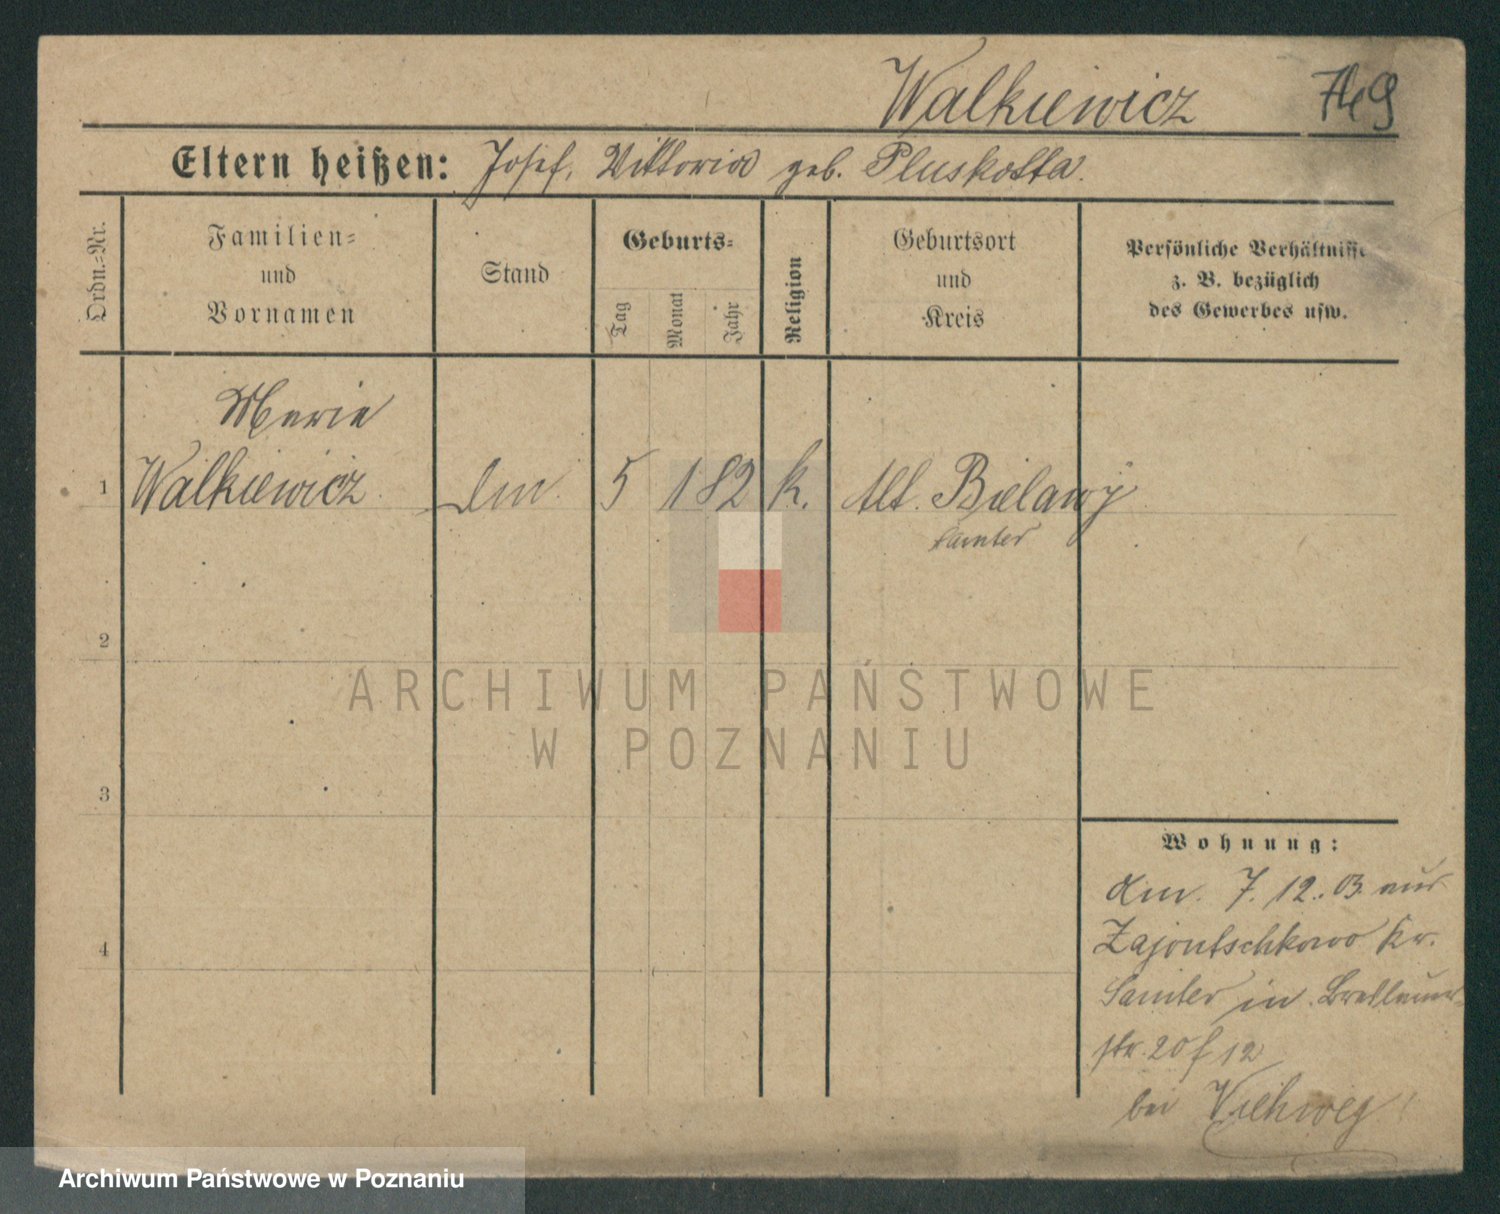 Walkiewicz
Eltern heißen: Josef, Viktoria geb. Pluskotta.
Ordn.=Nr.
Familien=
und
Vornamen
Stand
Geburts=
Tag
Monat
Jahr
Religion
Geburtsort
und
Kreis
Persönliche Verhältnisse
z. B. bezüglich
des Gewerbes usw.
Marie
1 Walkiewicz 5 1 82 k. Alt. Bielawy
Samter
2
3
4
Wohnung:
7. 12. 03. aus
Zajontschkowo Kr.
Samter in Breslauer
str. 20 f 12
bei Viehweg
ARCHIWUM PAŃSTWOWE
W POZNANIU
Archiwum Państwowe w Poznaniu